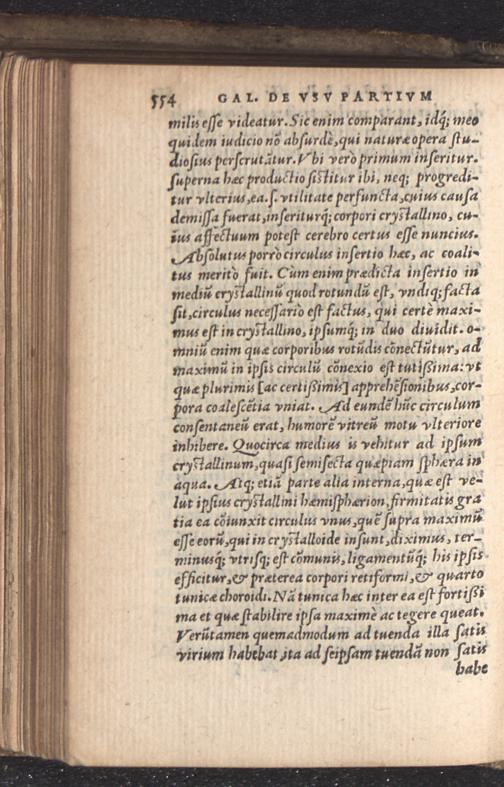 554 GAL. DE VSV PARTIVM
milis esse videatur. Sic enim comparant, idq; meo
quidem iudicio nō absurdè, qui naturæ opera stu-
diosius perscrutātur. Vbi verò primum inseritur.
superna hæc productio sistitur ibi, neq; progredi-
tur vlterius, ea .s. vtilitate perfuncta, cuius causa
demissa fuerat, inseriturq; corpori crystallino, cu-
ius affectuum potest cerebro certus esse nuncius.
Absolutus porrò circulus insertio hæc, ac coali-
tus meritò fuit. Cùm enim prædicta insertio in
mediū crystallinū quod rotundū est, vndiq; facta
sit, circulus necessariò est factus, qui certè maxi-
mus est in crystallino, ipsumq; in duo diuidit. o-
mniū enim quæ corporibus rotūdis cōnectūtur, ad
maximū in ipsis circulū cōnexio est tutissima: vt
quæ plurimis [ac certissimis] apprehēsionibus, cor-
pora coalescētia vniat. Ad eundē hūc circulum
consentaneū erat, humorē vitreū motu vlteriore
inhibere. Quocirca medius is vehitur ad ipsum
crystallinum, quasi semisecta quæpiam sphæra in
aqua. Atq; etiā parte alia interna, quæ est ve-
lut ipsius crystallini hæmisphærion, firmitatis gra
tia ea cōiunxit circulus vnus, quē supra maximū
esse eorū, qui in crystalloide insunt, diximus, ter-
minusq; vtrisq; est cōmunis, ligamentūq; his ipsis
efficitur, & præterea corpori retiformi, & quarto
tunicæ choroidi. Nā tunica hæc inter ea est fortissi
ma et quæ stabilire ipsa maximè ac tegere queat.
Verūtamen quemadmodum ad tuenda illa satis
virium habebat, ita ad seipsam tuendā non satis
habe